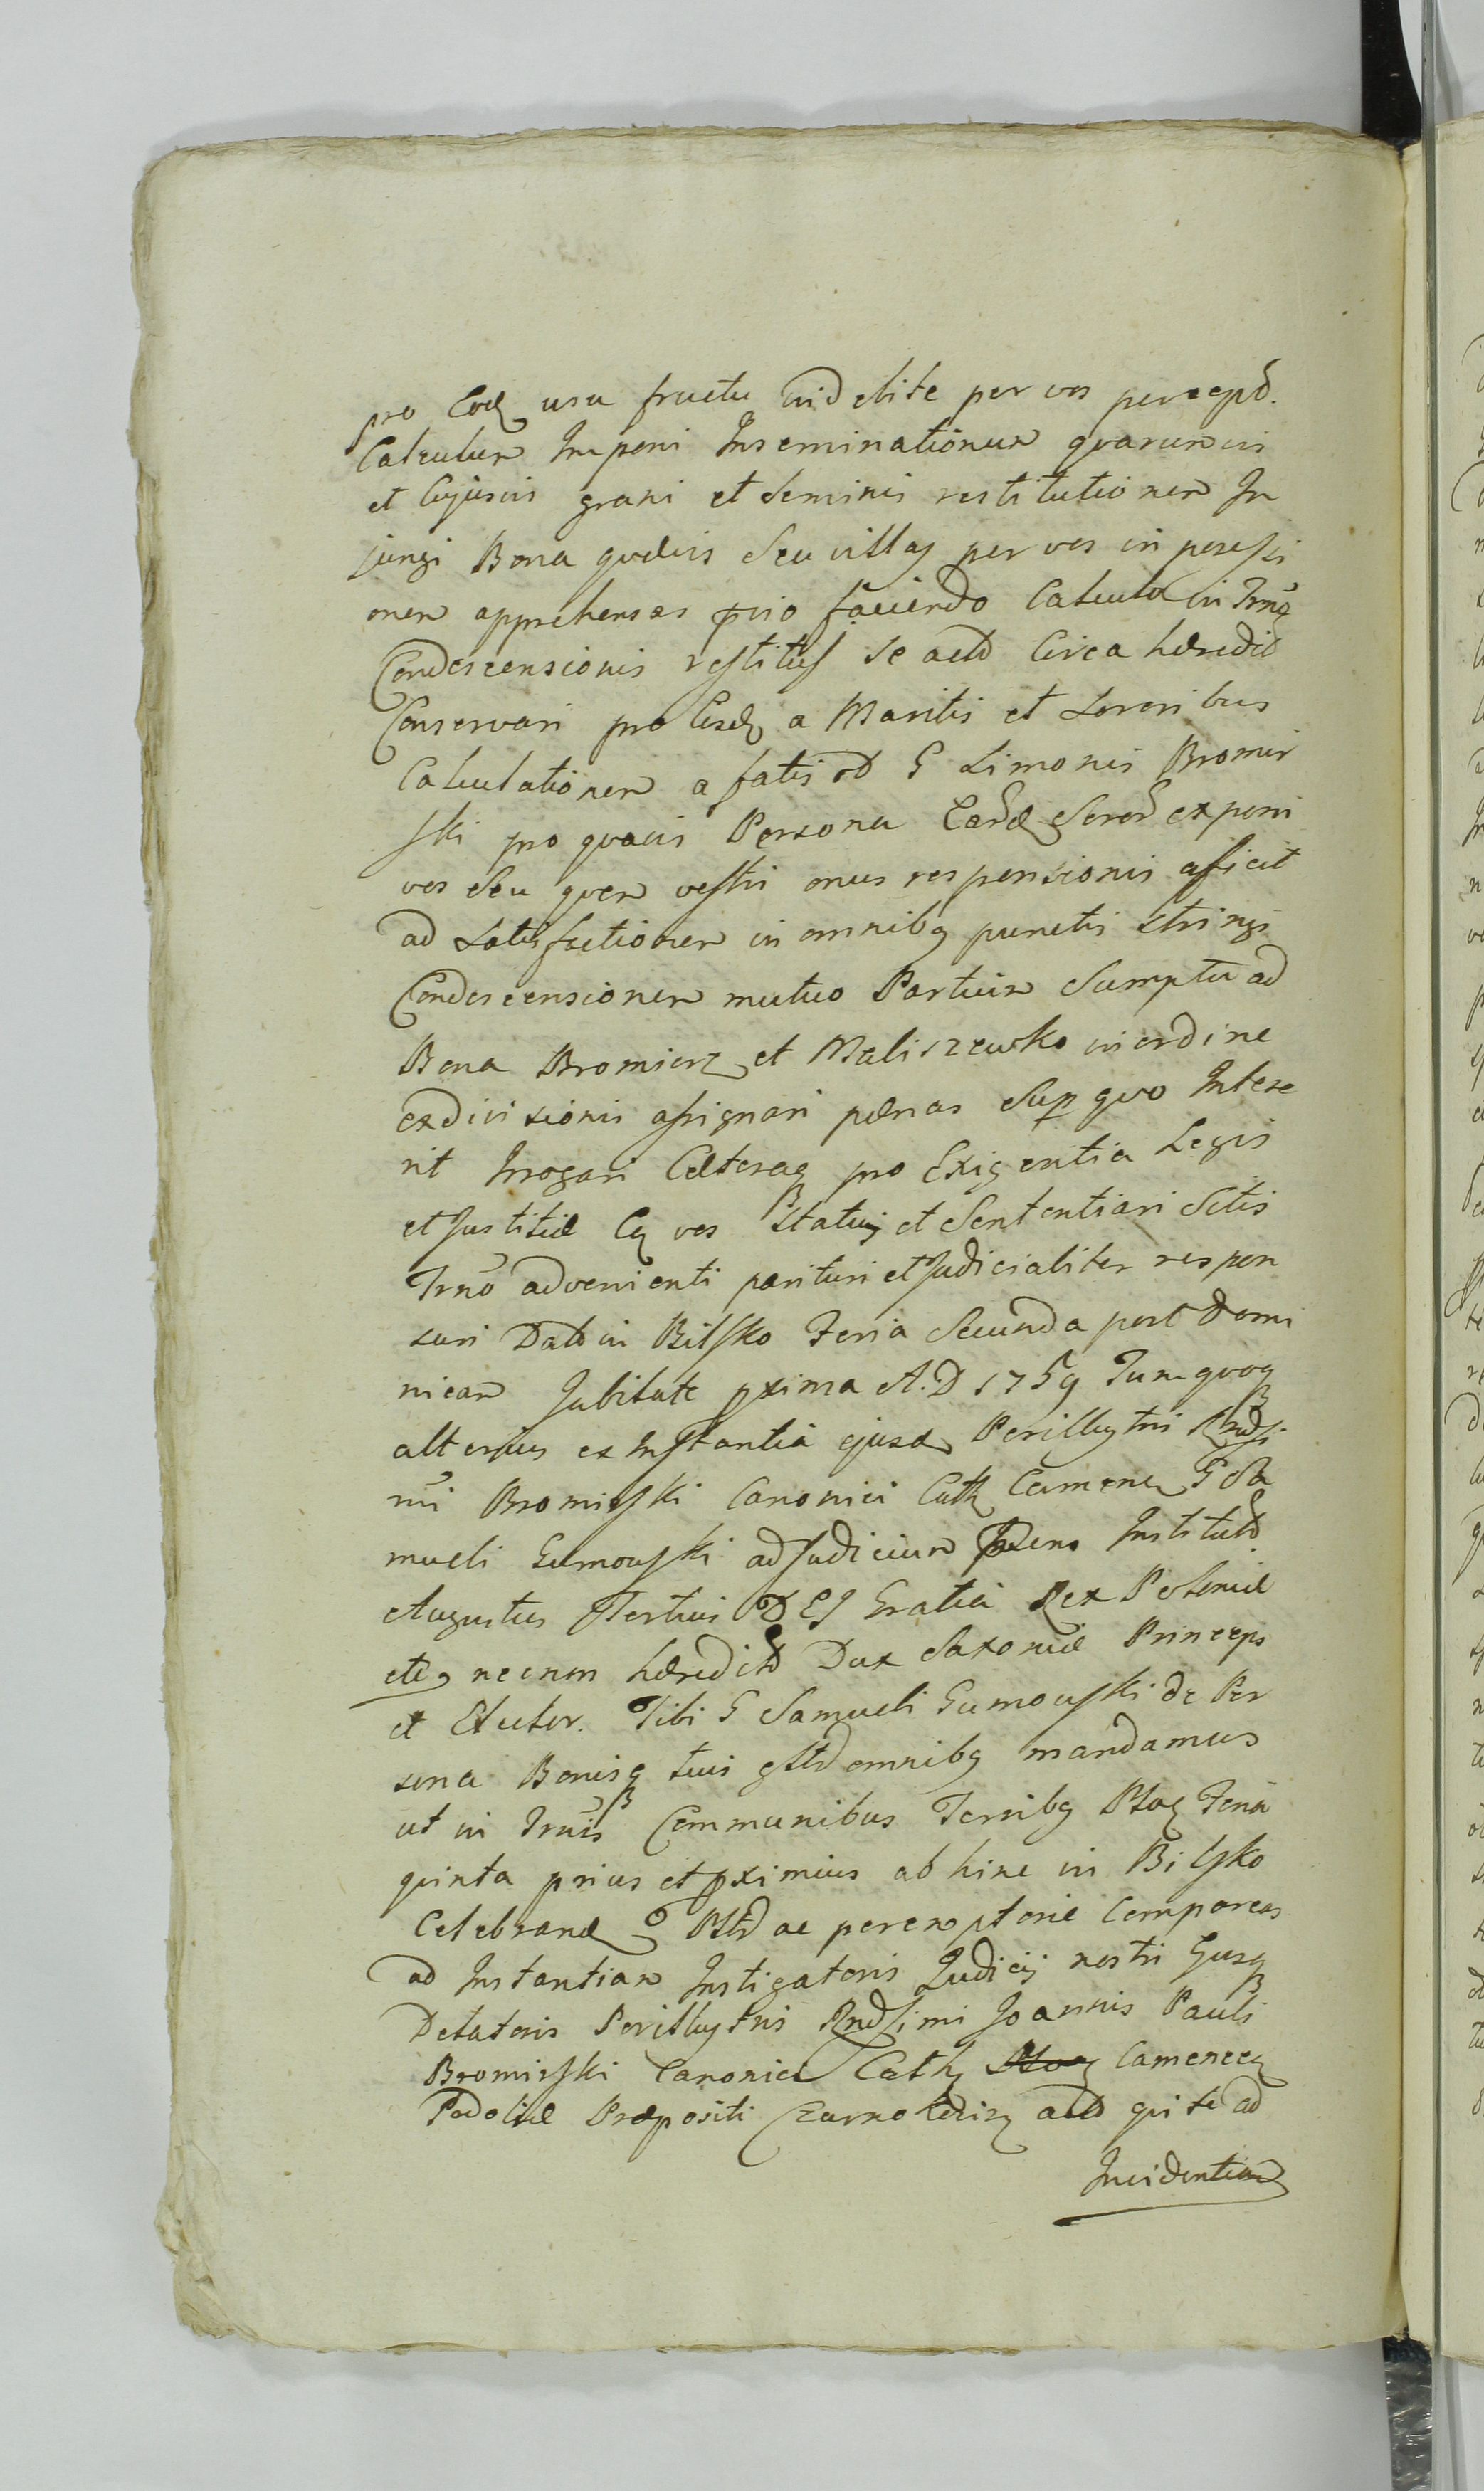 pro Eoq usu fructu indebite per vos percept.
Calculum Imponi Inseminationum quarumvis
et Cujusvis grani et Seminis restitutionem In
jungi Bona quævis Seu villas per vos in possessi
onem apprehensas prvio faciendo Calculo in Trno
Condescensionis restitui se actd Circa hæredit
Conservari pro Eisdq a Maritis et Sororibus
Calculationem a fatis od G Simonis Bromir
ski pro quavis Persona Eard Soror exponi
vos Seu quem vestri onus responsionis afficit
ad Satisfactionem in omnibq punctis stringi
Condescensionem mutuo Partium Sumptu ad
Bona Bromierz et Maliszewko in ordine
exdivisionis assignari pænas Sup quo Intere
rit Irrogari Cæteraq pro Exigentia Legis
et Justitiæ Eq vos Statuj et Sententiari Sitis
Trno advenienti parituri et Judicialiter respon
suri Datd in Bilsko Feria Secunda post Domi
nicam Jubilate pxima A. D 1759 Tum quoq
alterius ex Instantia ejusd Perillustris Rndssi
mi Bromirski Canonici Cath Camene G Sa
mueli Gumowski ad Judicium Prsens Institutd.
Augustus Tertius DEJ Gratia Rex Poloniæ
etc necnon hæreditd Dux Saxoniæ Princeps
et Elector. Tibi G Samueli Gumowski de Per
sona Bonisq tuis gstd omnibq mandamus
ut in Trnis Communibus Terribq Plocq Feria
quinta prius et pximius ab hinc in Bilsko
Celebrand Pltd ac peremptorie Compareas
ad Instantiam Instigatoris Judicij nostri Ejusq
Delatoris Perillustris Rndssimi Joannis Pauli
Bromirski Canonici Cath Camenecq
Podoliæ Præpositi Czarno actd qui te ad
Incidentiam